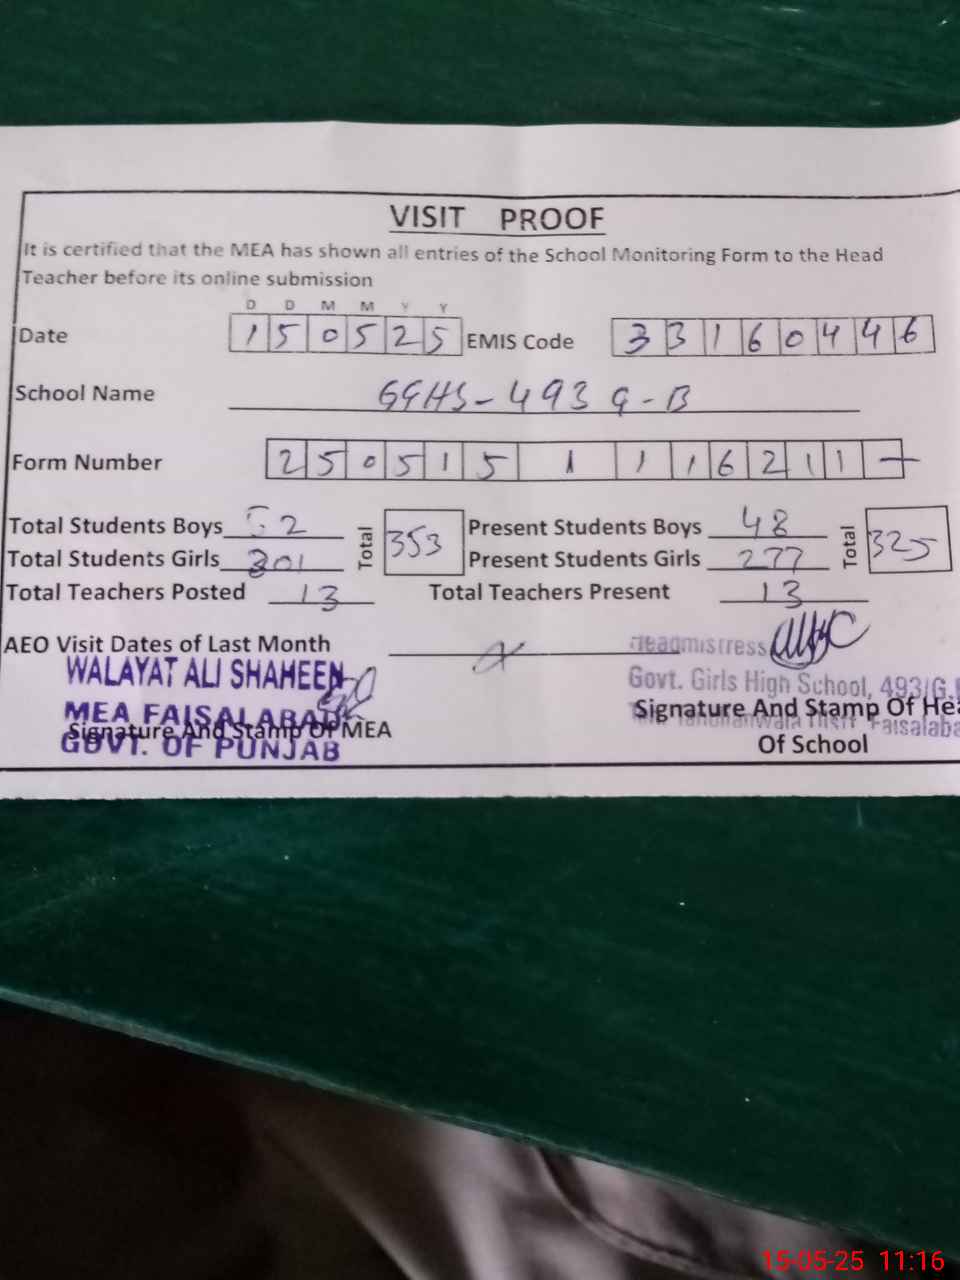 VISIT PROOF
It is certified that the MEA has shown all entries of the School Monitoring Form to the Head
Teacher before its online submission
D D M M Y Y
Date 1 5 0 5 2 5 EMIS Code 3 3 1 6 0 4 4 6
School Name GGHS-493 G-B
Form Number 2 5 0 5 1 5 1 1 1 6 2 1 1 -
Total Students Boys 52 Total 353 Present Students Boys 48 Total 325
Total Students Girls 301 Present Students Girls 277
Total Teachers Posted 13 Total Teachers Present 13
AEO Visit Dates of Last Month
Headmistress
WALAYAT ALI SHAHEEN
Govt. Girls High School, 493/G.
MEA FAISALABAD
Signature And Stamp Of MEA
GOVT. OF PUNJAB
Signature And Stamp Of Hea
Tandlianwala Distt Faisalaba
Of School
15-05-25 11:16